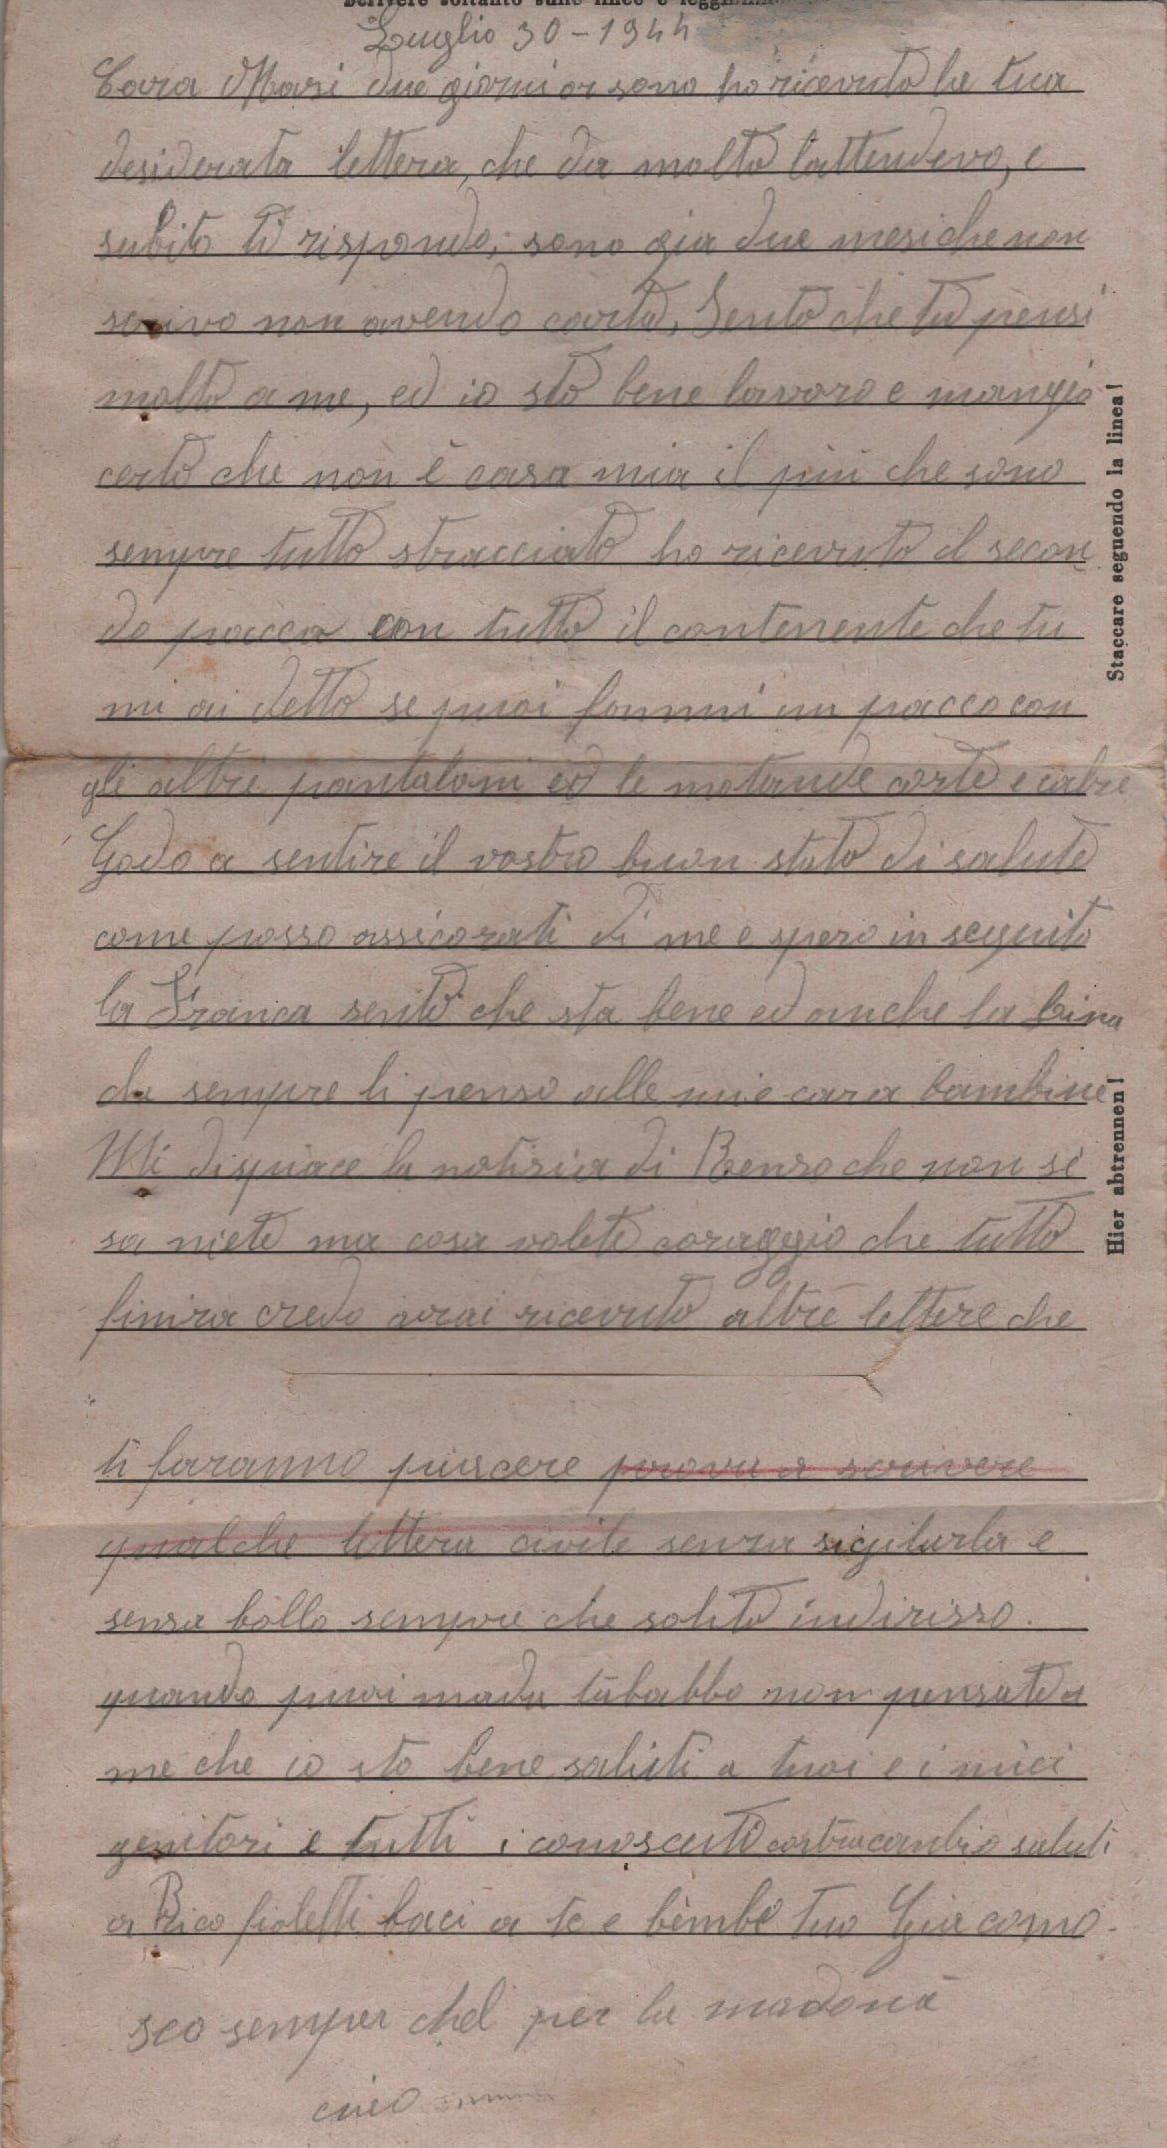 Scrivere soltanto sulle linee e leggibilmente
Luglio 30-1944
Cara Mari due giorni or sono ho ricevuto la tua
desiderata lettera, che da molto l'attendevo, e
subito ti rispondo, sono gia due mesi che non
scrivo non avendo carta, Sento che tu pensi
molto a me, ed io sto bene lavoro e mangio
certo che non è casa mia il più che sono
sempre tutto stracciato ho ricevuto il secon
do pacco con tutto il contenente che tu
mi ai detto se puoi fammi un pacco con
gli altri pantaloni ed le motande corte e calze
Godo a sentire il vostro buon stato di salute
come posso assicorati di me e spero in seguito
la Franca sento che sta bene ed anche la Lina
da sempre li penso alle mie cara bambine
Mi dispiace la notisia di Renzo che non si
sa niete ma cosa volete coraggio che tutto
finira credo avrai ricevuto altre lettere che
ti faranno piacere prova a scrivere
qualche lettera civile senza sigilarla e
senza bollo sempre che solito indirisso.
quando puoi mada tababbo non pensate a
me che io sto bene saluti a tuoi e i miei
genitori e tutti i conoscuti contracambio saluti
a Rico fioletti baci a te e bimbe tuo Giacomo.
sco semper chel per la madona
ciao
Staccare seguendo la linea!
Hier abtrennen!